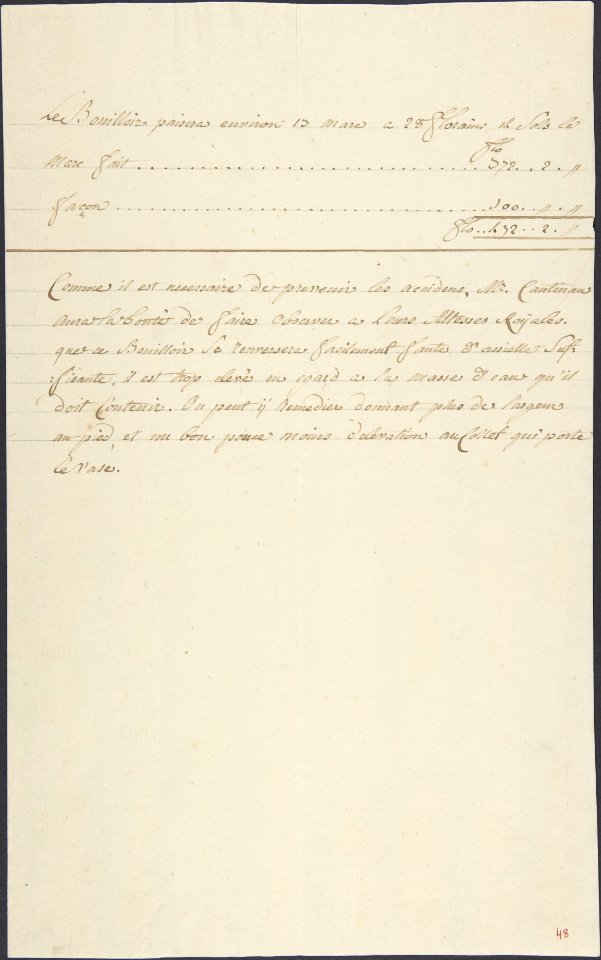 Le Bouilloir paisera environ 13 marc a 28 florins sols le
flo
marc fait ................................ 372..2.〃
façon ................................ 100..〃.〃
flo..472..2.〃
Comme il est necessaire de prevenir les accidens, Mr. Cantenau
aura la bonté de faire observer a Leurs Altesses Royales.
que ce Bouilloir se renversera facilement faute d'assiette suf-
fisante, il est trop elevé en egard a la masse d'eau qu'il
doit contenir. On peut ÿ remedier donnant plus de largeur
au pied, et un bon pouce moins d'elevation au Collet qui porte
le vase.
48